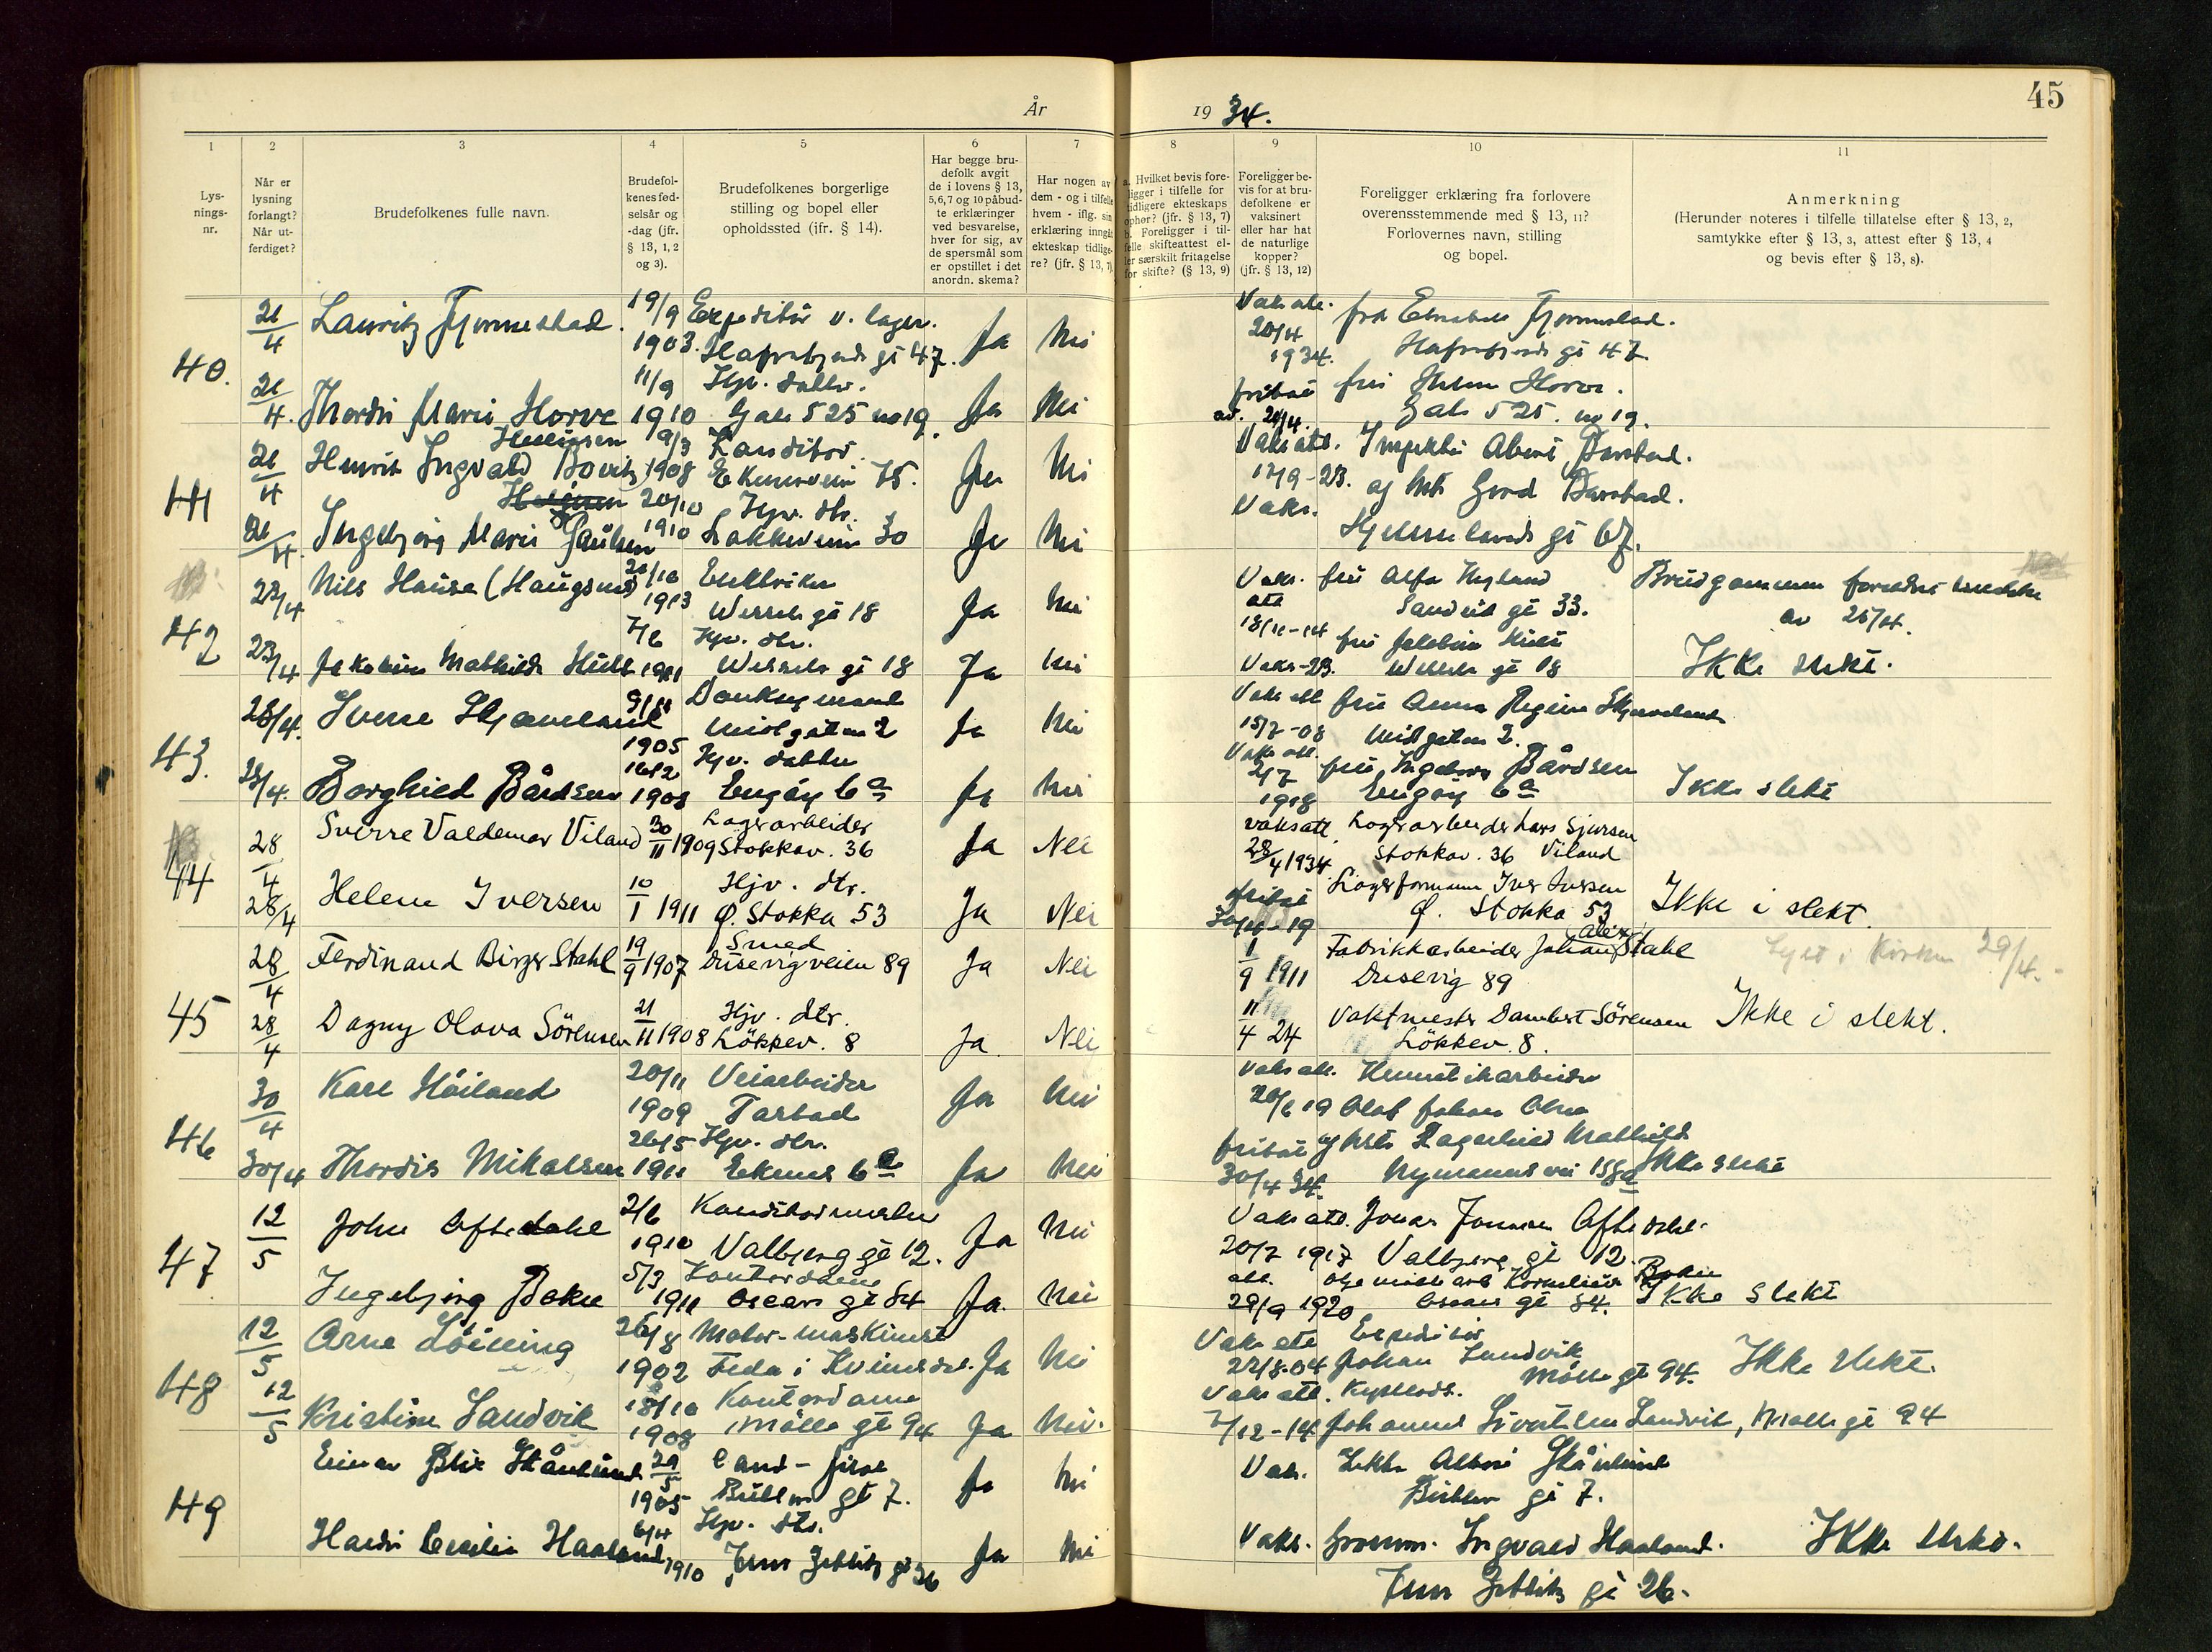 45
År 1934.
1
2
3
4
5
6
7
8
9
10
11
Lys-
nings-
nr.
Når er
lysning
forlangt?
Når ut-
ferdiget?
Brudefolkenes fulle navn.
Brudefol-
kenes fød-
selsår og
-dag (jfr.
§ 13, 1, 2
og 3).
Brudefolkenes borgerlige
stilling og bopel eller
opholdssted (ifr. § 14).
Har begge bru-
defolk avgit
de i lovens § 13,
5, 6, 7 og 10 påbud-
te erklæringer
ved besvarelse,
hver for sig, av
de spørsmål som
er opstillet i det
anordn. skema?
Har nogen av
dem - og i tilfelle
hvem - iflg. sin
erklæring inngåt
ekteskap tidlige-
re? (jfr. § 13, 7)
a. Hvilket bevis fore-
ligger i tilfelle for
tidligere ekteskaps
ophør? (jfr. § 13, 7)
b. Foreligger i til-
felle skifteattest el-
ler særskilt fritagelse
for skifte? (§ 13, 9)
Foreligger be-
vis for at bru-
defolkene er
vaksinert
eller har hat
de naturlige
kopper?
(jfr. § 13, 12)
Foreligger erklæring fra forlovere
overensstemmende med § 13, 11?
Forlovernes navn, stilling
og bopel.
Anmerkning
(Herunder noteres i tilfelle tillatelse efter § 13, 2,
samtykke efter § 13, 3, attest efter § 13, 4
og bevis efter § 13, 8).
40.
21/4 Lauritz Fjermestad. 19/9 1903. Expeditør v. lager.
Hafrsfjords gt 47. Ja Nei
Vaks att. 20/4 1934. Fjermestad.
Hafrsfjords gt 47.
21/4. Thordis Marie Horve 11/9 1910 Hjv. datter.
Gate 525 no 19. Ja Nei
fritat av. 21/4. fru Horve.
Gate 525. no 19.
41
21/4 Henrik Ingvald Bovitz 9/3 1908 Konditor.
75. Ja Nei
Vaks att. 17/9-23.
21/4. Ingebjørg Marie Paulsen 20/10 1910 Hjv. dtr.
30 Ja Nei
Vaks. Hjelmelands gt 67.
42
23/4 Nils Hause (Haugsned) 1913 Elektriker
Wessels gt 18 Ja Nei
Vaks. att 18/11-14 fru Alfa Hegland
Sandvik gt 33.
Brudgommen
av 25/4.
23/4 Jakobine Mathilde 7/6 1911 Hjv. dtr.
Wessels gt 18 Ja Nei
Vaks-23. fru Jakobine
Wessels gt 18
Ikke slekt.
43.
28/4. Sverre Skjæveland 9/11 1905
Midtgaten 2 Ja Nei
Vaks att 15/7-08 fru Anna Regine Skjæveland
Midtgaten 2.
28/4. Borghild Bårdsen 16/2 1908 Hjv. datter
Engøy 6a Ja Nei
Vaks att. 2/7 1918 fru Ingeborg Bårdsen
Engøy 6a
Ikke slekt
44
28/4 Sverre Valdemar Viland 30/11 1909 Lagerarbeider
Stokkav. 36 Ja Nei
vaks att 28/4 1934 Lagerarbeider Lars Sjursen
Stokkav. 36 Viland
28/4 Helene Iversen 10/1 1911 Hjv. dtr.
Ø. Stokka 53 Ja Nei
fritat 30/4-19 Lagerformann Iver Iversen
Ø. Stokka 53
Ikke i slekt.
45
28/4 Ferdinand Birger Stahl 19/9 1907 Smed
Dusevigveien 89 Ja Nei
1/9 1911 Fabrikkarbeider Johan Alex. Stahl
Dusevig 89
Lyst i Kirken 29/4.
28/4 Dagny Olava Sörensen 21/11 1908 Hjv. dtr.
Lökkev. 8 Ja Nei
11/4 24 Vaktmester Dambert Sörensen
Lökkev. 8.
Ikke i slekt.
46
30/4 Kare Höiland 20/11 1909 Veiarbeider
Tastad Ja Nei
Vaks att. 20/6 19 Hermetikarbeider
Olaf Johan Olsen
30/4 Thordis Mikalsen 26/5 1911 Hjv. dtr.
Ekenes 6a Ja Nei
fritat 30/4 34. og hstr. Ragnhild Mathilde
Nymanns vei 158a
Ikke slekt
47
12/5 John Oftedahl 2/6 1910 Konditormester
Valbjerg gt 12. Ja Nei
Vaks att. 20/7 1917 Jonas Jonasen Oftedahl.
Valbjerg gt 12.
Ingebjørg Bokn 5/3 1911 Kontordame
Oscars gt 84 Ja. Nei
att. 29/9 1920 Kornelius Bokn
Oscars gt 84.
Ikke slekt
48
12/5 Arne Löining 26/8 1902 Motor-maskinist
Feda i Kvinesdal. Ja Nei
Vaks att 22/8-04 Expeditør
Johan Sandvik
Mölle gt 94.
Ikke slekt.
12/5 Kristine Sandvik 18/10 1908 Kontordame
Mölle gt 94 Ja Nei.
Vaks att. 7/12-14 Johannes Sandvik, Mölle gt 94
49
Einar Blix Skånlund 29/5 1905 Cand-jur
Bühler gt 7. Ja Nei
Vak. Skånlund
Bühler gt 7.
Haldis Cecilie Haaland 6/4 1910 Hjv. dtr.
Jens Zetlitz gt 26 Ja Nei
Vaks. Ingvald Haaland.
Jens Zetlitz gt 26.
Ikke slekt.